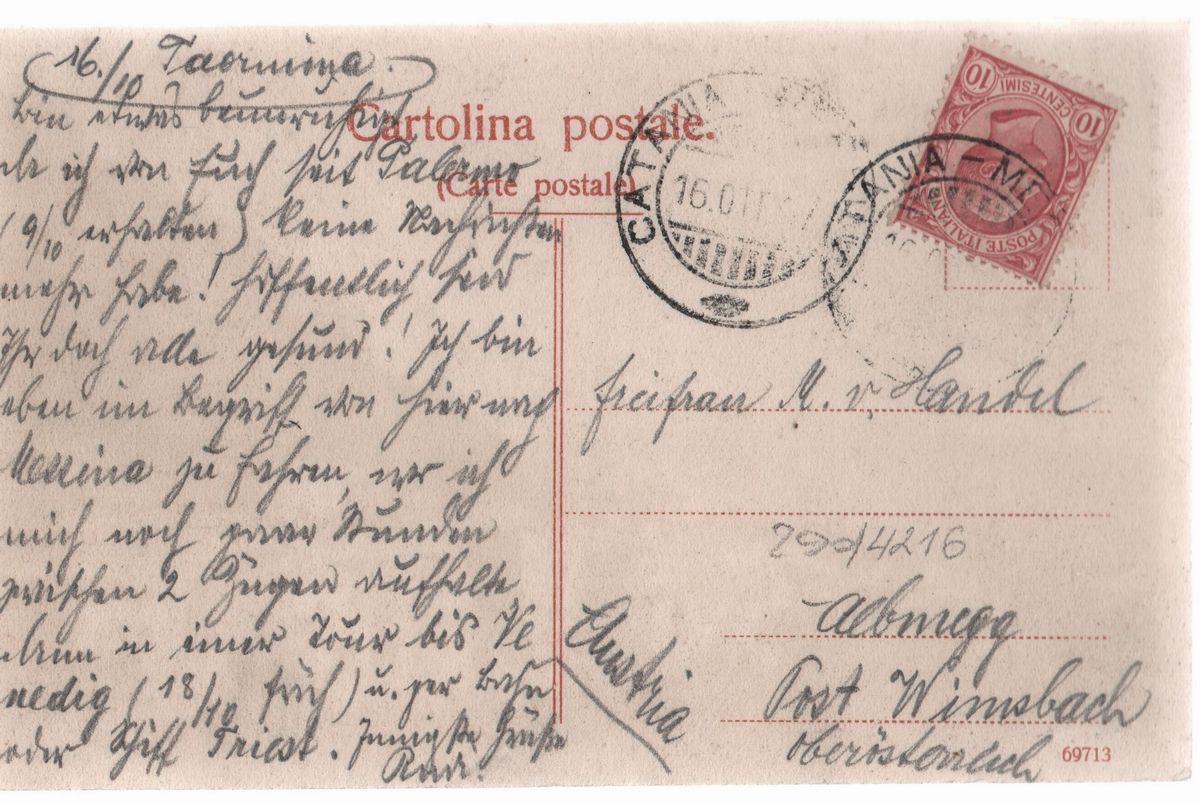 16./10 Taormina.
Bin etwas beunruhigt
da ich von Euch seit Palermo
(9/10 erhalten) keine Nachrichten
mehr habe! Hoffentlich seid
Ihr doch alle gesund! Ich bin
eben im Begriff von hier nach
Messina zu fahren, wo ich
mich noch paar Stunden
zwischen 2 Zügen aufhalte
dann in einer Tour bis Ve
nedig (18/10 früh) u. per Bahn
oder Schiff Triest. Innigste Grüße
Cartolina postale.
(Carte postale)
CATANIA
16.OTT
CATANIA - ME
10 10
CENTESIMI
POSTE ITALIANE
Freifrau M. v. Handel
200/4216
Almegg
Post Wimsbach
Oberösterreich
Austria
69713